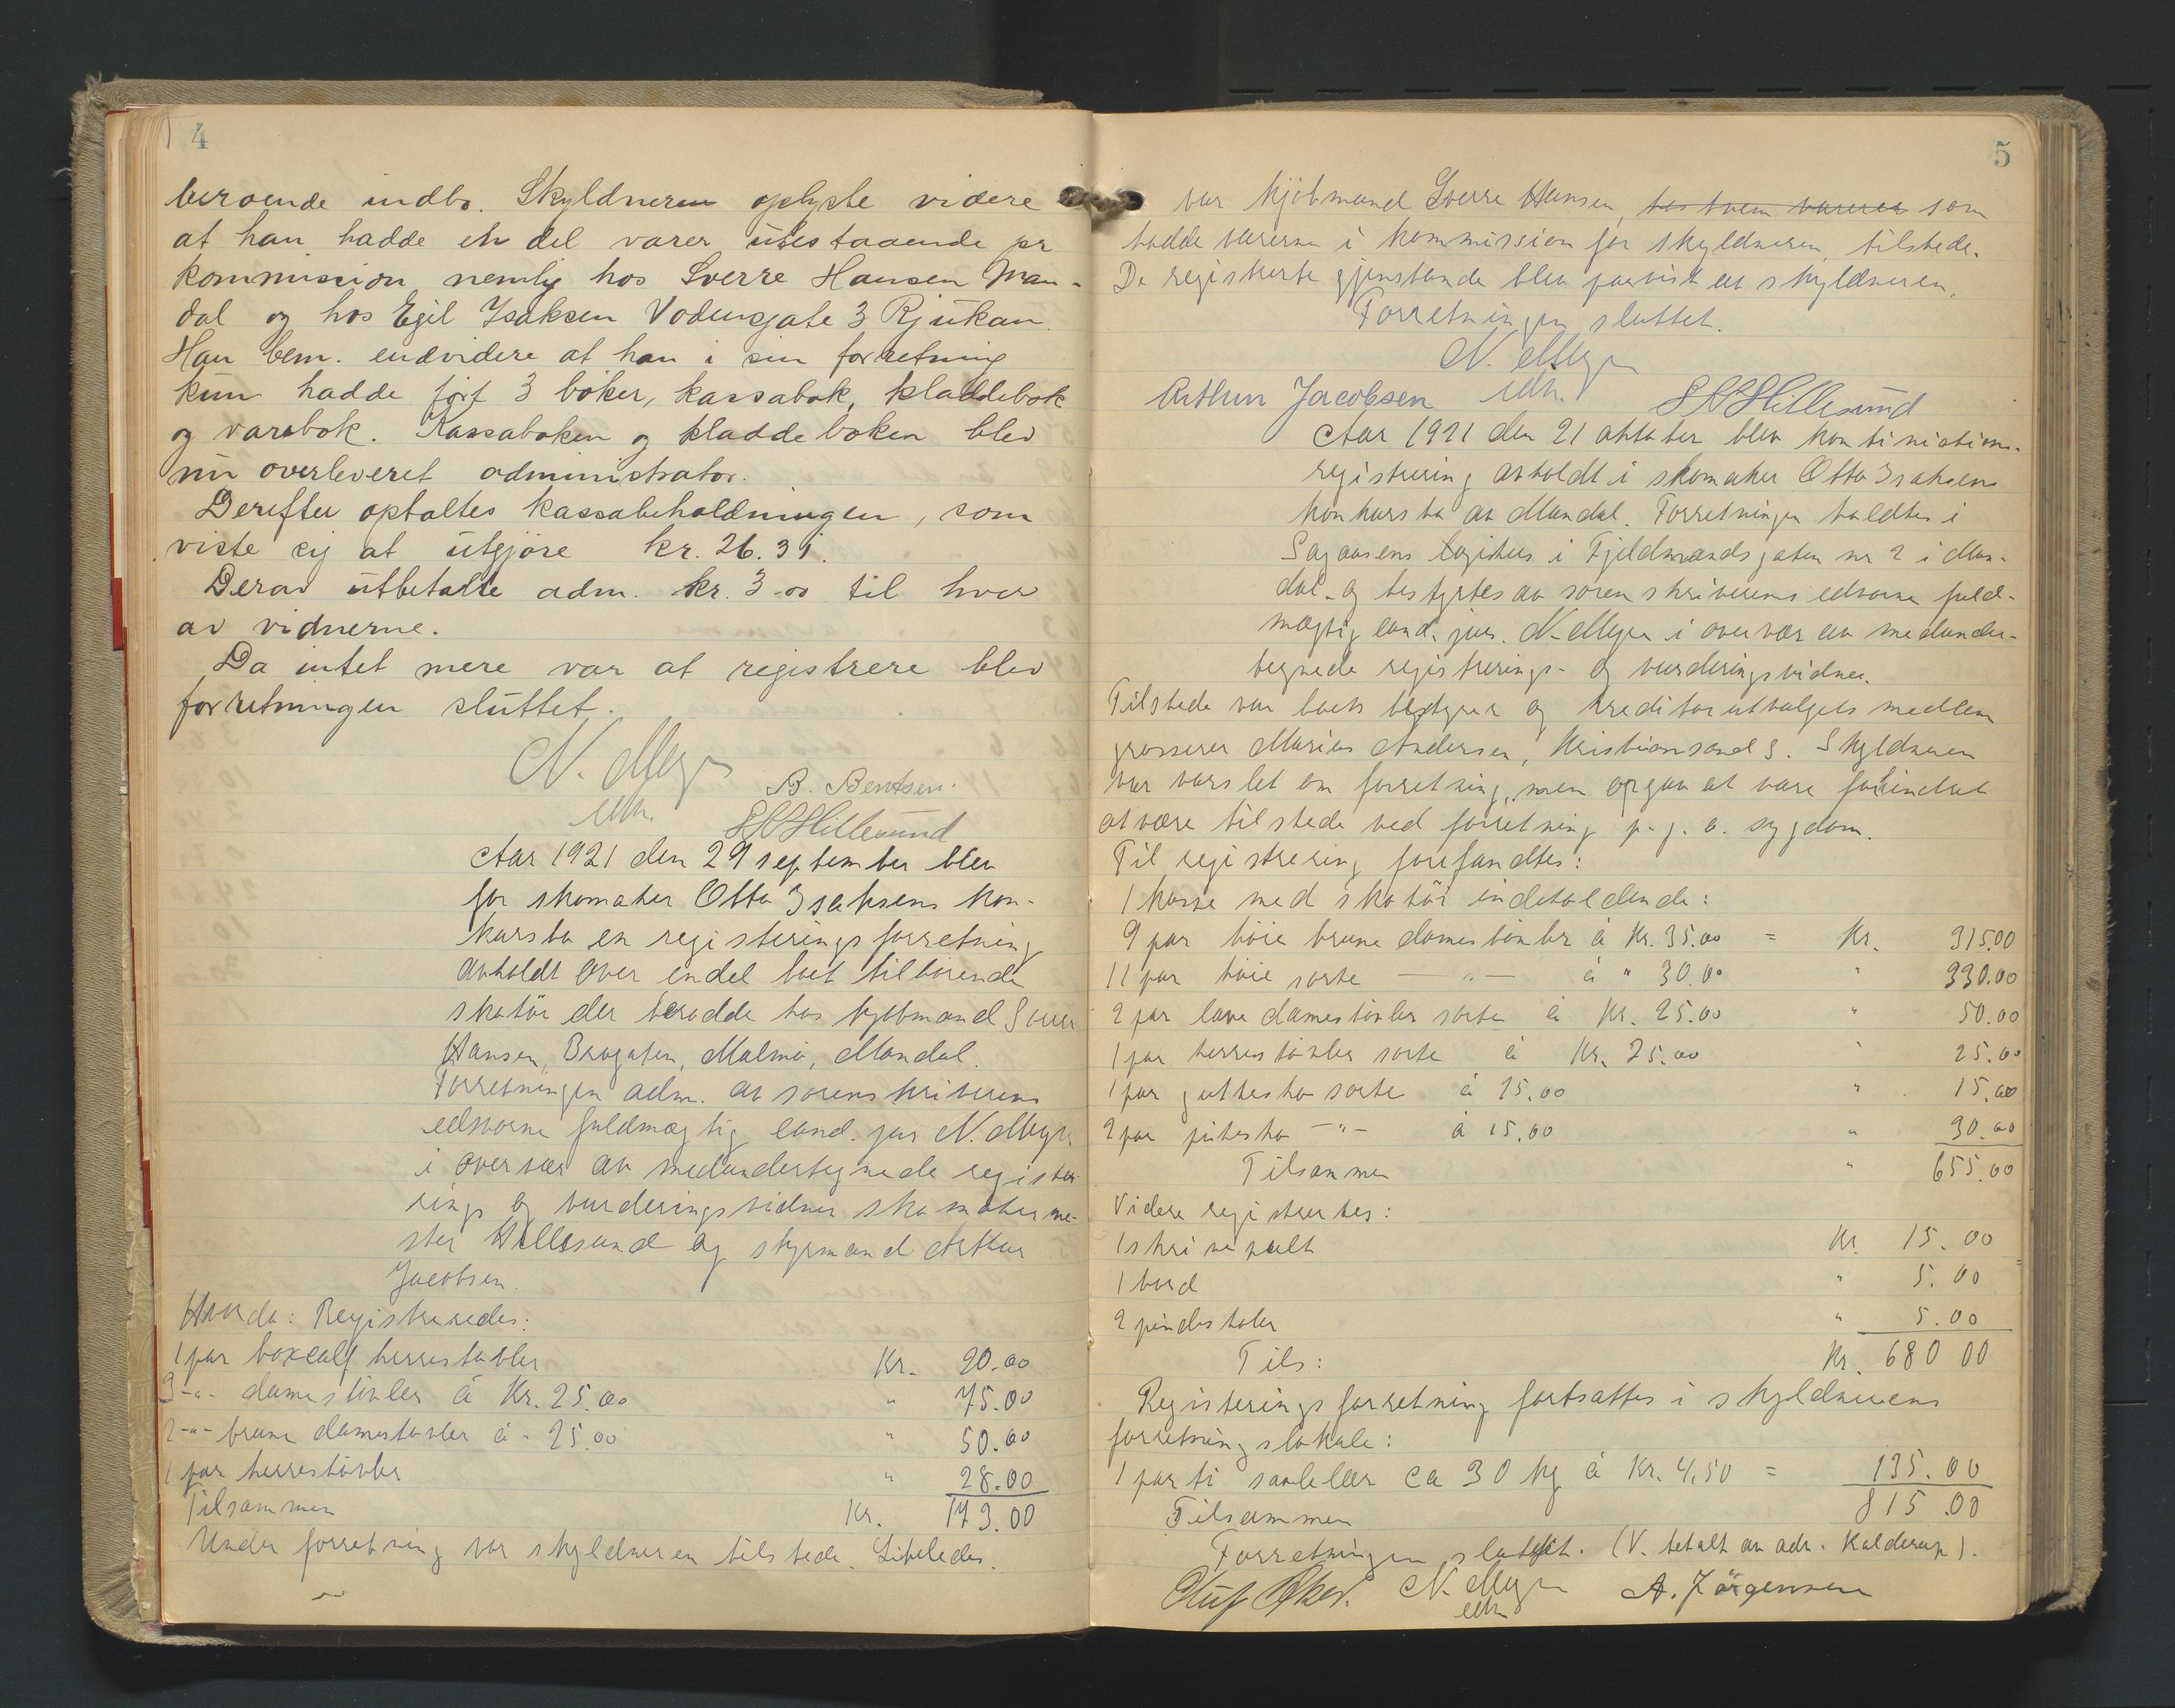 4
beroende indbo. Skyldneren oplyste videre
at han hadde en del varer utestaaende pr
kommission nemlig hos Sverre Hansen Man-
dal og hos Egil Isaksen Vodensgate 3 Rjukan.
Han bem. endvidere at han i sin forretning
kun hadde ført 3 bøker, kassabok, kladdebok
og varebok. Kassaboken og kladdeboken blev
nu overleveret administrator.
Derefter optaltes kassabeholdningen, som
viste sig at utgjøre kr. 26.31.
Derav utbetalte adm. kr. 3.00 til hver
av vidnerne.
Da intet mere var at registrere blev
forretningen sluttet.
N. Meyer
edsv.
B. Bentsen.
Hillesund
Aar 1921 den 29 september blev
for skomaker Otto Isaksens kon-
kursbo en registeringsforretning
avholdt over endel boet tilhørende
skotøi der berodde hos kjøbmand Sverre
Hansen, Brogaten, Malmø, Mandal.
Forretningen adm. av sorenskriverens
edsvorne fuldmægtig cand. jur N. Meyer
i overvær av medundertegnede register-
rings og vurderingsvidner skomakerme-
ster Hillesund og styrmand Arthur
Jacobsen.
Hvorda: Registreredes:
1 par boxcalf herrestøvler Kr. 20.00
3 -"- damestøvler á Kr. 25.00 " 75.00
2 -"- brune damestøvler á - 25.00 " 50.00
1 par herrestøvler " 28.00
Tilsammen Kr. 173.00
Under forretning var skyldneren tilstede. Likeledes
5
var kjøbmand Sverre Hansen, hos hvem varerer som
hadde varerne i kommission for skyldneren, tilstede.
De registrerte gjenstande blev paavist av skyldneren.
Forretningen sluttet.
N. Meyer
edsv.
Arthur Jacobsen
Hillesund
Aar 1921 den 21 oktober blev kontinuations-
registrering avholdt i skomaker Otto Isaksens
konkursbo av Mandal. Forretningen holdtes i
Sagaasens logishus i Fjeldmandsgaten nr 2 i Man-
dal og bestyrtes av sorenskriverens edsvorne fuld-
mægtig cand. jur. N. Meyer i overvær av medunder-
tegnede registrerings- og vurderingsvidner.
Tilstede var boets bestyrer og kreditorutvalgets medlem
grosserer Marius Andersen, Kristiansand S. Skyldneren
var varslet om forretning, men opgav at være forhindret
at være tilstede ved forretning p.g.a. sygdom.
Til registrering forefandtes:
1 kasse med skotøi indeholdende:
9 par høie brune damestøvler á Kr. 35.00 = Kr. 315.00
11 par høie sorte — " — á " 30.00 " 330.00
2 par lave damestøvler sorte á Kr. 25.00 " 50.00
1 par herrestøvler sorte á Kr. 25.00 " 25.00
1 par guttesko sorte á 15.00 " 15.00
2 par pikesko -"- á 15.00 " 30.00
Tilsammen " 655.00
Videre registrertes:
1 skrivepult Kr. 15.00
1 bord " 5.00
2 pindestoler " 5.00
Tils: Kr. 680 00
Registeringsforretning fortsattes i skyldnerens
forretningslokale:
1 parti saalelær ca 30 kg á Kr. 4,50 = 135.00
Tilsammen 815.00
Forretningen sluttet. (V. betalt av adv. Kalderup).
Oluf Aker. N. Meyer A. Jørgensen
edsv